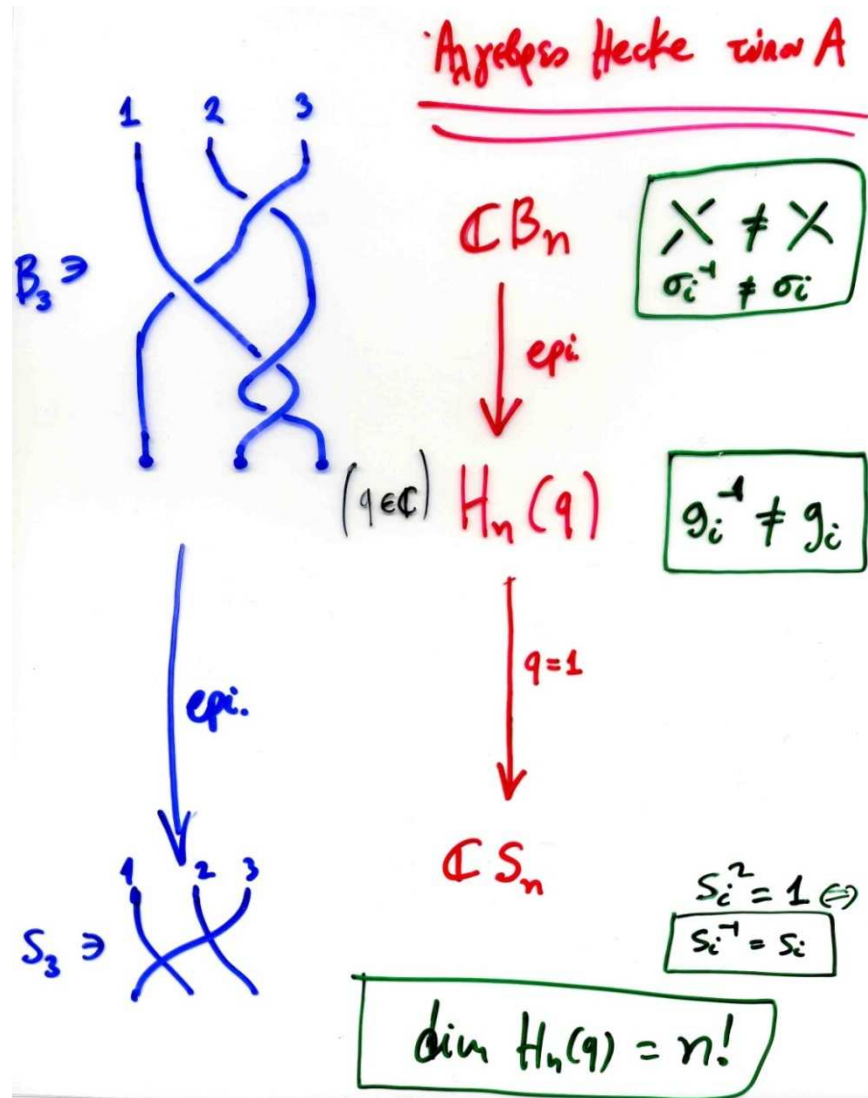 Άλγεβρες Hecke τύπου A
1 2 3
B₃ ∋
ℂBₙ
σᵢ⁻¹ ≠ σᵢ
epi.
(q∈ℂ) Hₙ(q)
gᵢ⁻¹ ≠ gᵢ
epi.
q=1
ℂSₙ
1 2 3
S₃ ∋
sᵢ² = 1 ⇔
sᵢ⁻¹ = sᵢ
dim Hₙ(q) = n!